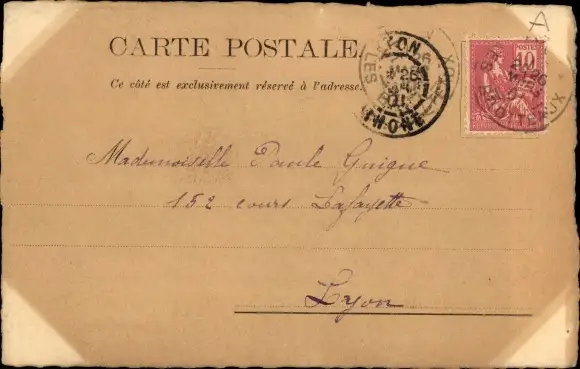 A
CARTE POSTALE
Ce côté est exclusivement réservé à l'adresse.
LYON
LES
RHONE
10
Mademoiselle Paule Guigue
152 cours Lafayette
Lyon